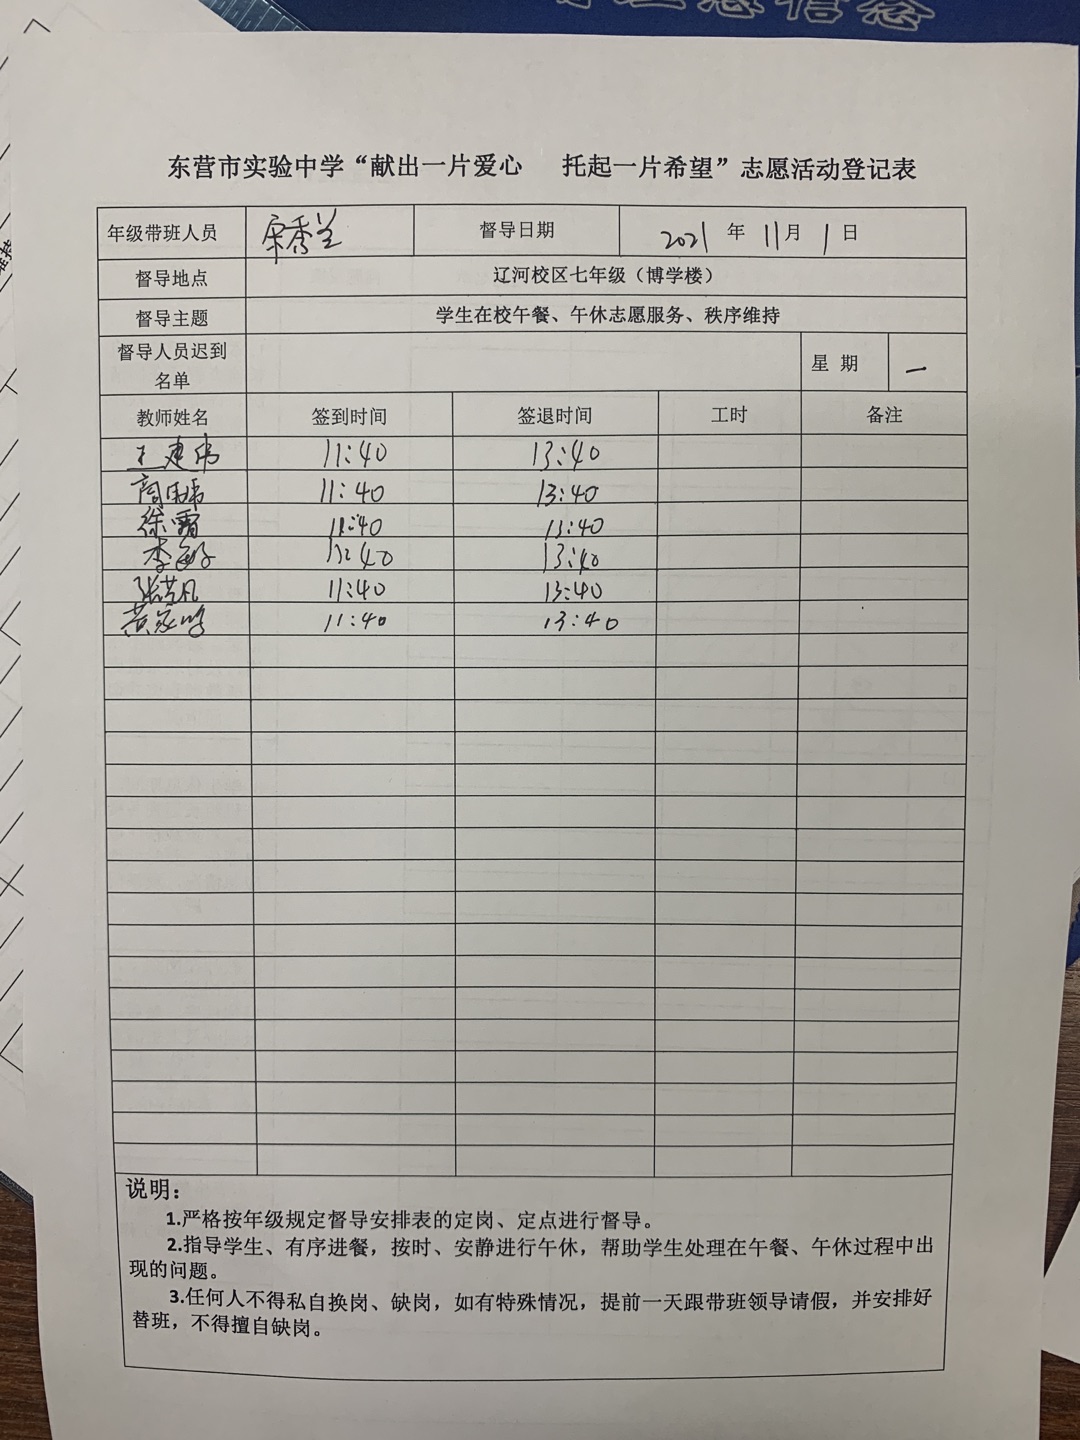 东营市实验中学“献出一片爱心 托起一片希望”志愿活动登记表
年级带班人员 宋秀兰 督导日期 2021 年 11 月 1 日
督导地点 辽河校区七年级（博学楼）
督导主题 学生在校午餐、午休志愿服务、秩序维持
督导人员迟到名单 星 期 一
教师姓名 签到时间 签退时间 工时 备注
王建伟 11:40 13:40
11:40 13:40
徐霜 11:40 13:40
李 40 13:40
张芸凡 11:40 13:40
黄 11:40 13:40
说明：
1.严格按年级规定督导安排表的定岗、定点进行督导。
2.指导学生、有序进餐，按时、安静进行午休，帮助学生处理在午餐、午休过程中出
现的问题。
3.任何人不得私自换岗、缺岗，如有特殊情况，提前一天跟带班领导请假，并安排好
替班，不得擅自缺岗。